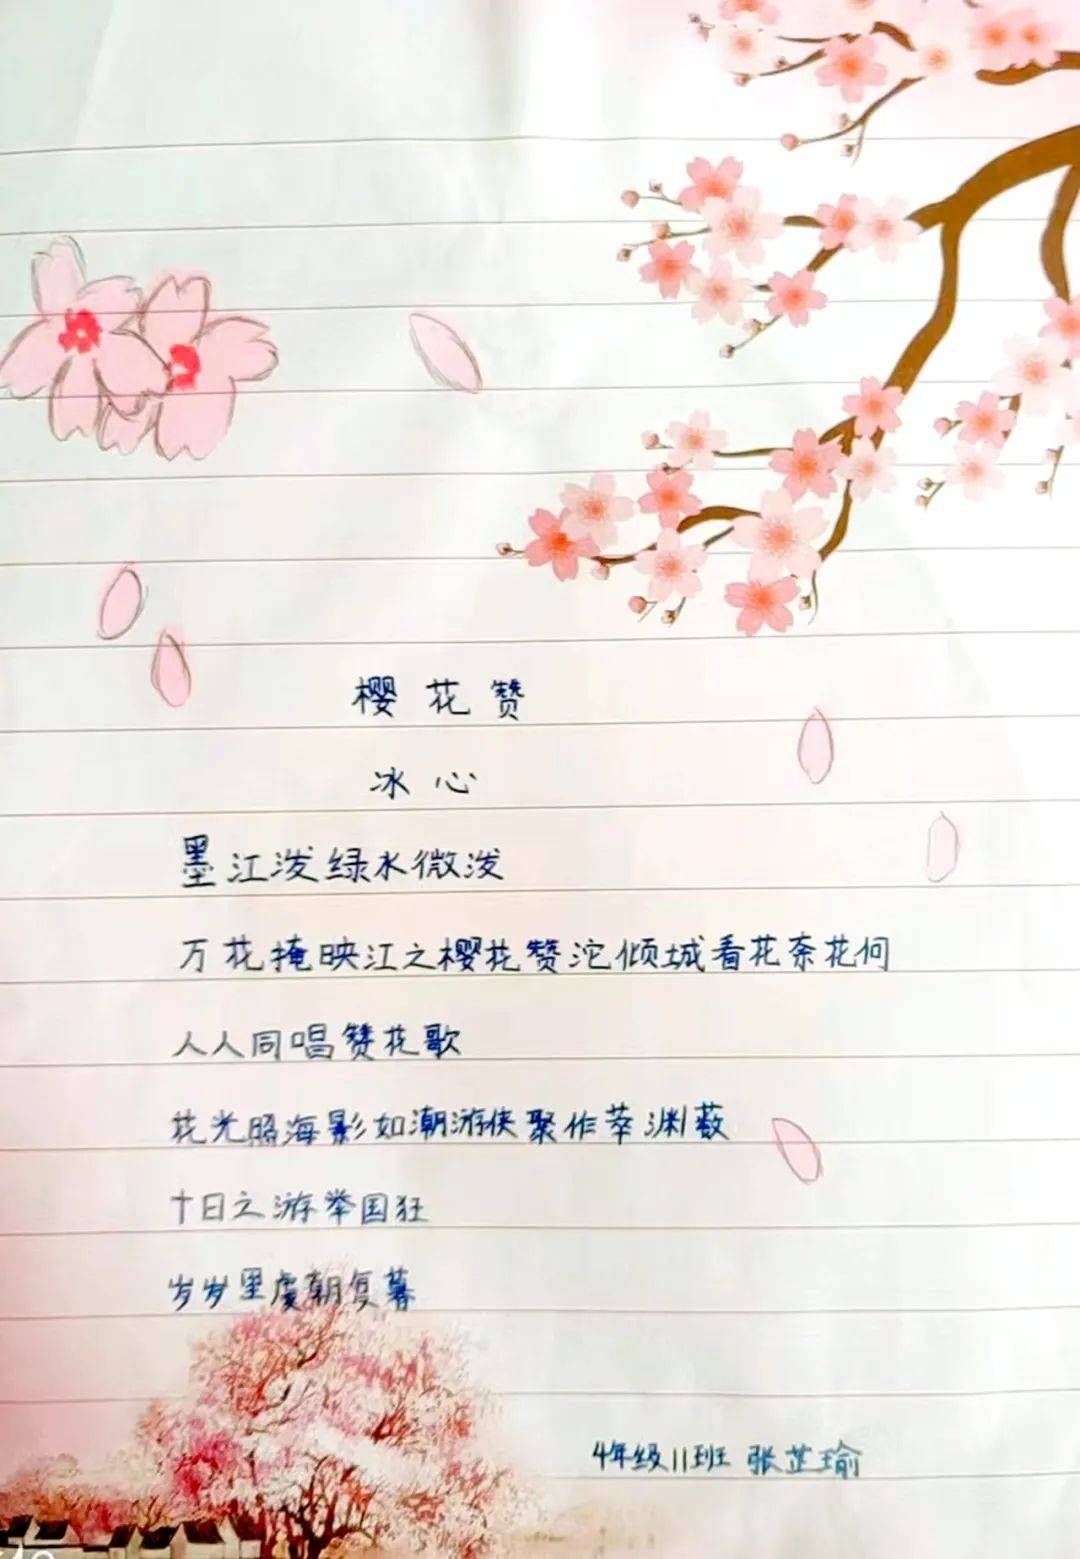 樱花赞
冰心
墨江泼绿水微泼
万花掩映江之樱花赞沱倾城看花奈花何
人人同唱赞花歌
花光照海影如潮游侠聚作萃渊薮
十日之游举国狂
岁岁里虞朝复暮
4年级11班 张芷瑜